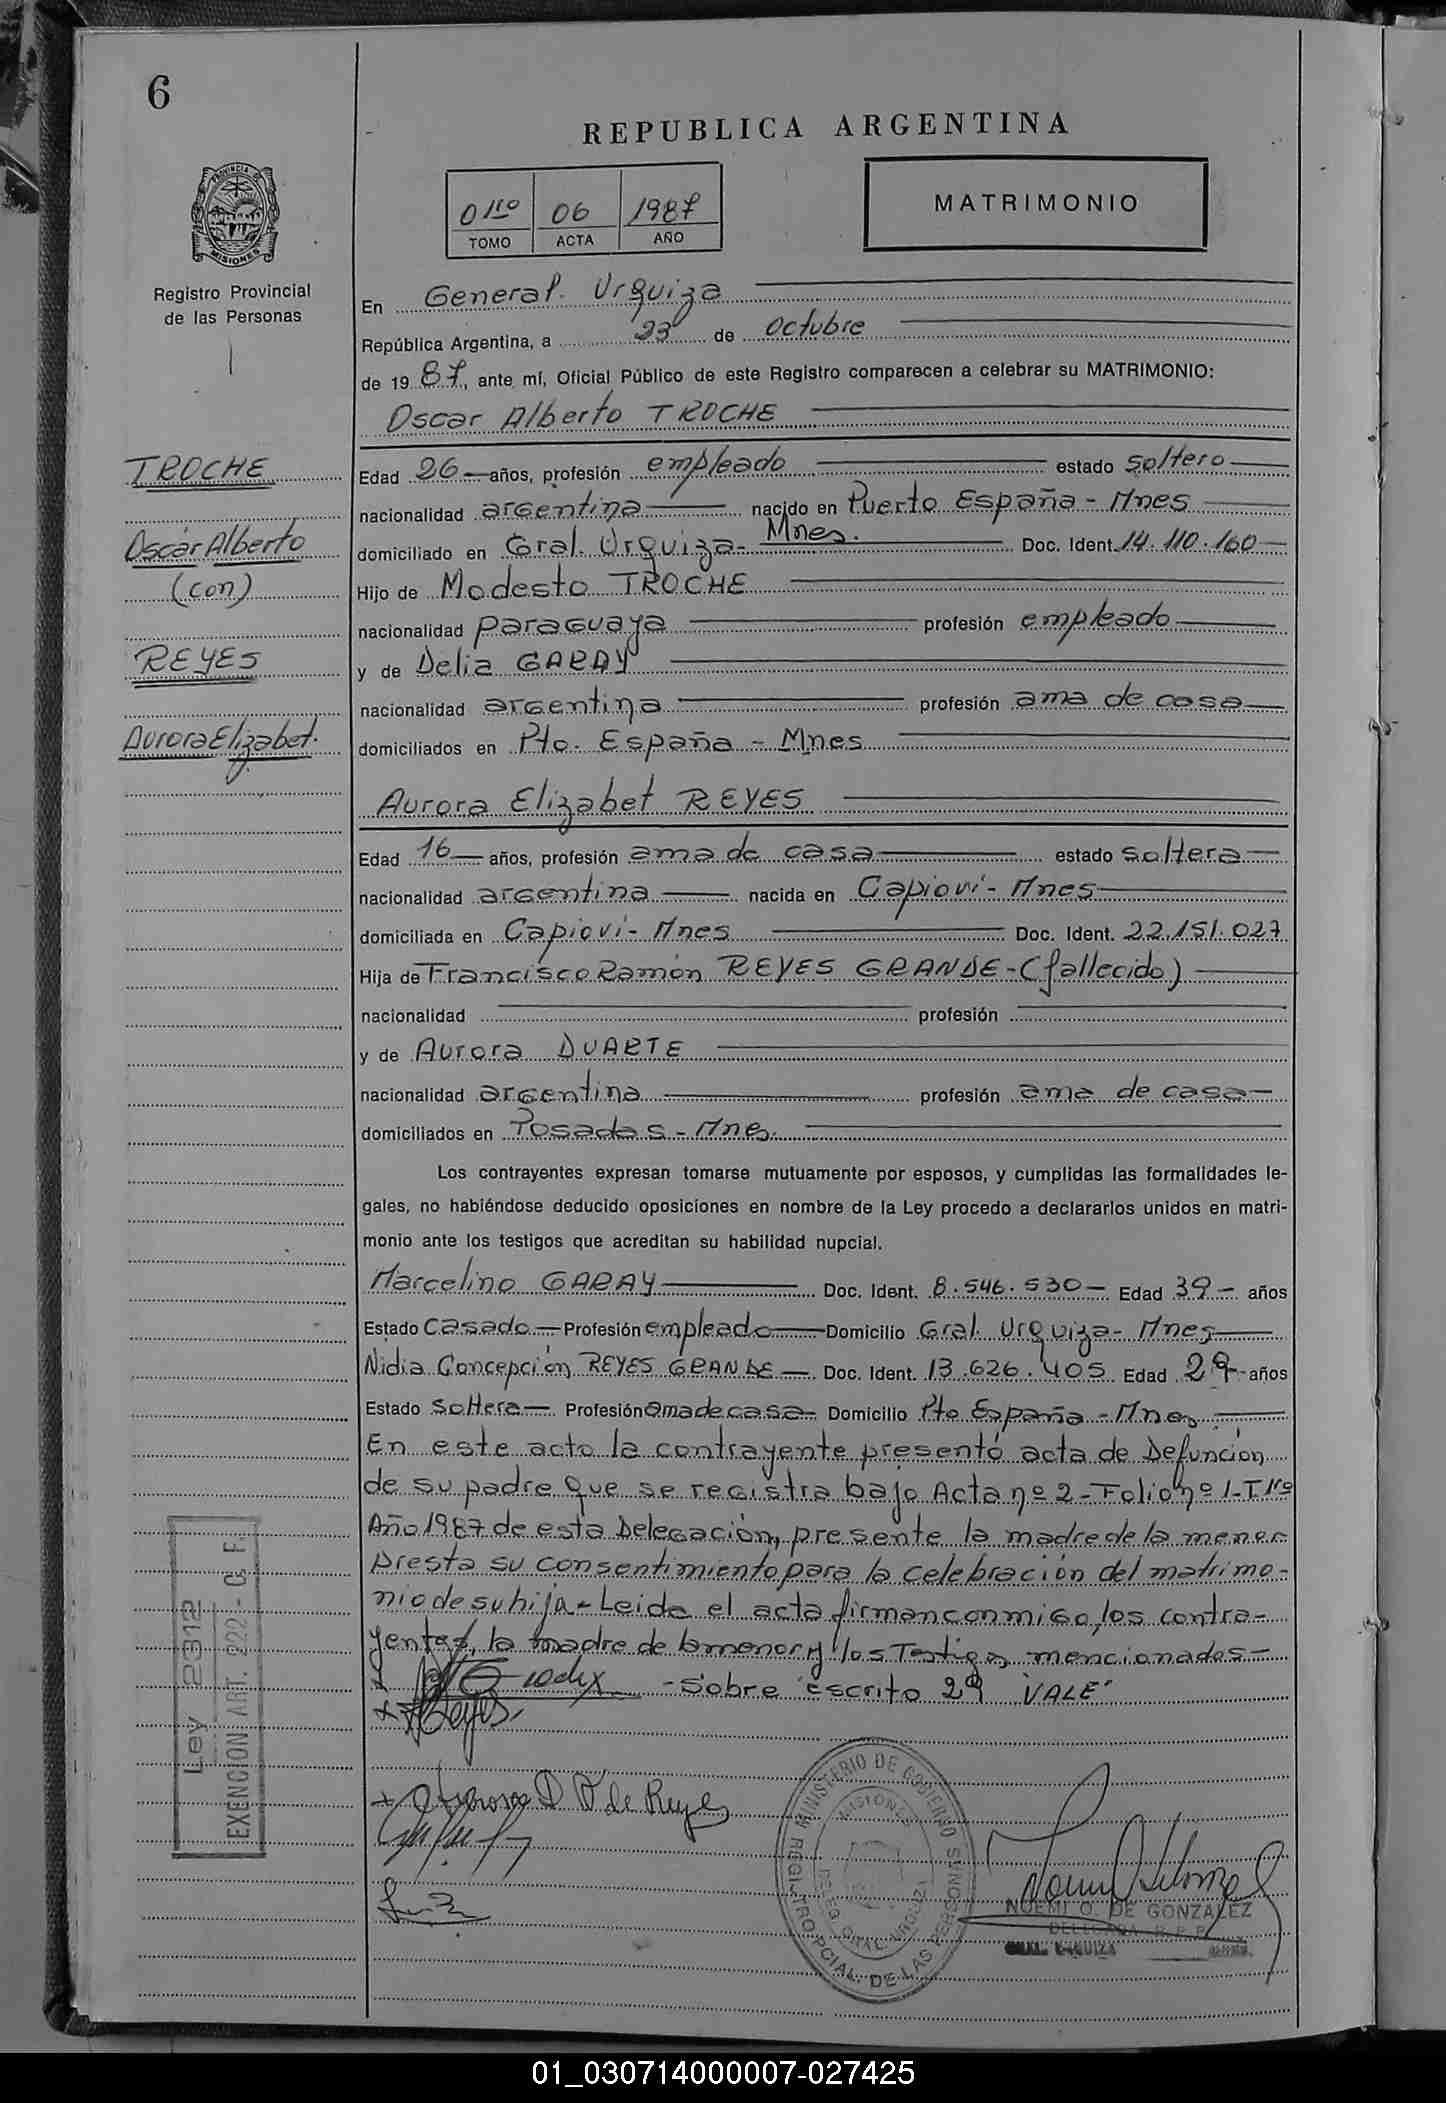 6
REPUBLICA ARGENTINA
PROVINCIA DE
MISIONES
Registro Provincial
de las Personas
0 1ro 06 1987
TOMO ACTA AÑO
MATRIMONIO
En General Urquiza
República Argentina, a 23 de Octubre
de 19 87, ante mí, Oficial Público de este Registro comparecen a celebrar su MATRIMONIO:
Oscar Alberto TROCHE
TROCHE
Oscar Alberto
(con)
REYES
Aurora Elizabet.
Edad 26 años, profesión empleado estado soltero
nacionalidad argentina nacido en Puerto España - Mnes
domiciliado en Gral. Urquiza - Mnes. Doc. Ident. 14.110.160
Hijo de Modesto TROCHE
nacionalidad paraguaya profesión empleado
y de Delia GARAY
nacionalidad argentina profesión ama de casa
domiciliados en Pto. España - Mnes
Aurora Elizabet REYES
Edad 16 años, profesión ama de casa estado soltera
nacionalidad argentina nacida en Capioví - Mnes
domiciliada en Capioví - Mnes Doc. Ident. 22.151.027
Hija de Francisco Ramón REYES GRANDE - (fallecido)
nacionalidad profesión
y de Aurora DUARTE
nacionalidad argentina profesión ama de casa
domiciliados en Posadas - Mnes.
Los contrayentes expresan tomarse mutuamente por esposos, y cumplidas las formalidades le-
gales, no habiéndose deducido oposiciones en nombre de la Ley procedo a declararlos unidos en matri-
monio ante los testigos que acreditan su habilidad nupcial.
Marcelino GARAY Doc. Ident. 8.546.530 Edad 39 años
Estado casado Profesión empleado Domicilio Gral. Urquiza - Mnes
Nidia Concepción REYES GRANDE Doc. Ident. 13.626.405 Edad 29 años
Estado Soltera Profesión ama de casa Domicilio Pto España - Mnes
En este acto la contrayente presentó acta de Defunción
de su padre que se registra bajo Acta nº 2 - Folio nº 1 - T 1ro
Año 1987 de esta Delegación, presente la madre de la menor
presta su consentimiento para la celebración del matrimo-
nio de su hija - Leida el acta firman conmigo, los contra-
yentes, la madre de la menor y los Testigos mencionados -
- Sobre escrito 29 "VALE"
Reyes.
D de Reyes
Ley 2312
EXENCION ART. 222 - Cs. F.
MINISTERIO DE GOBIERNO
MISIONES
DELEG. GRAL. URQUIZA
REGISTRO PCIAL. DE LAS PERSONAS
NOEMI O. DE GONZALEZ
DELEGADA R. P. P.
GRAL. URQUIZA
01_030714000007-027425